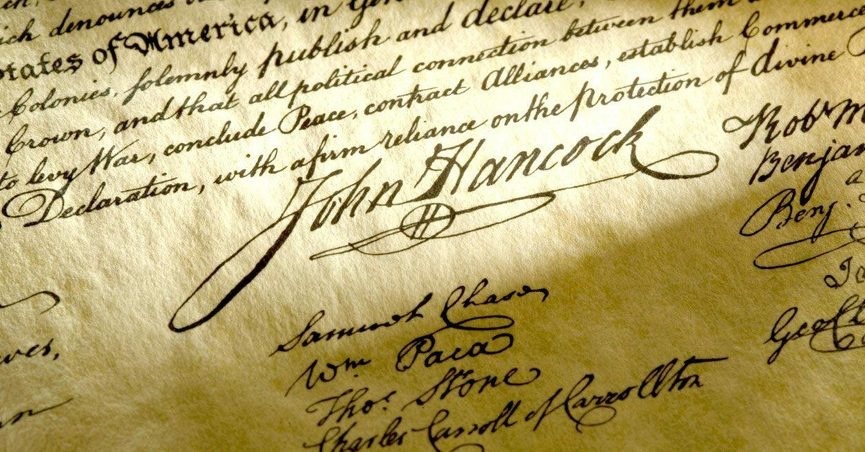 ich denounces
States of America, in Gen
Colonies, solemnly publish and declare,
Crown, and that all political connection between them
to levy War, conclude Peace, contract Alliances, establish Commerce
Declaration, with a firm reliance on the Protection of divine
John Hancock
Rob
Benjam
Benj.
Samuel Chase
Wm Paca
Thos Stone
Charles Carroll of Carrollton
Geo